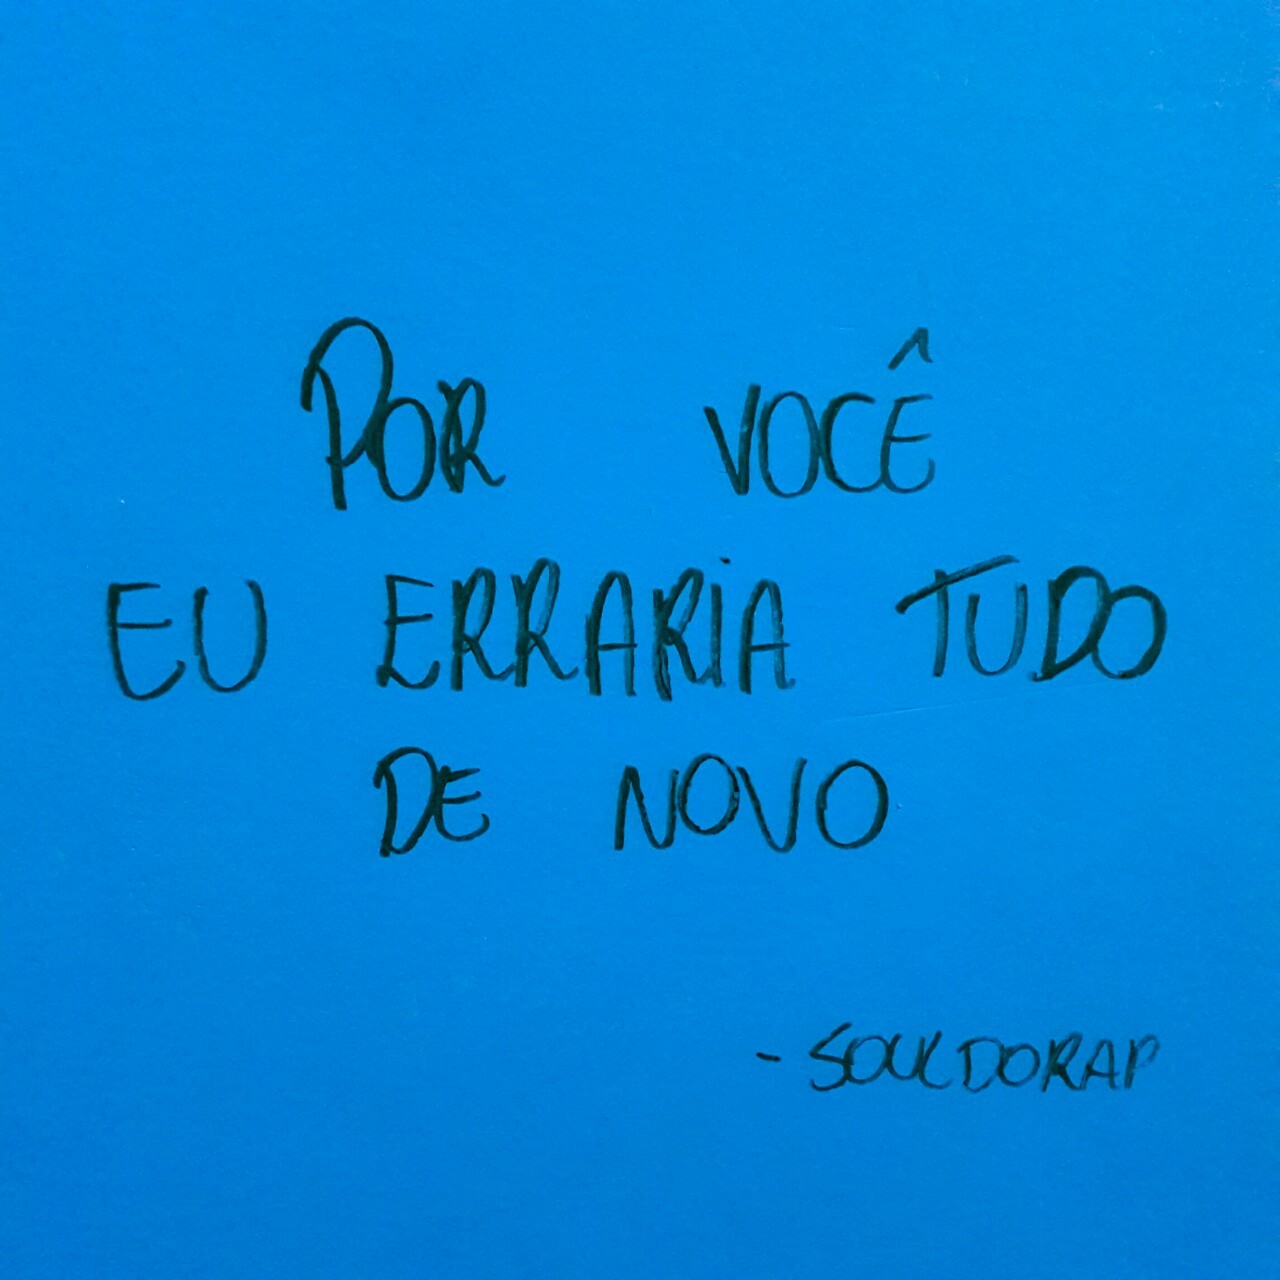 POR VOCÊ
EU ERRARiA TUDO
DE NOVO
- SOULDORAP